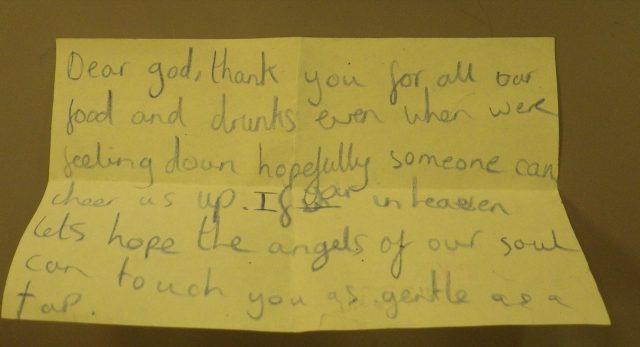 Dear god, thank you for all our
food and drinks even when were
feeling down hopefully someone can
cheer us up. If in heaven
lets hope the angels of our soul
can touch you as gentle as a
tap.